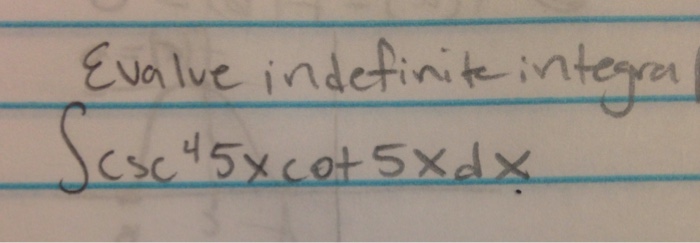 Evalve indefinite integral
∫csc⁴5xcot5xdx